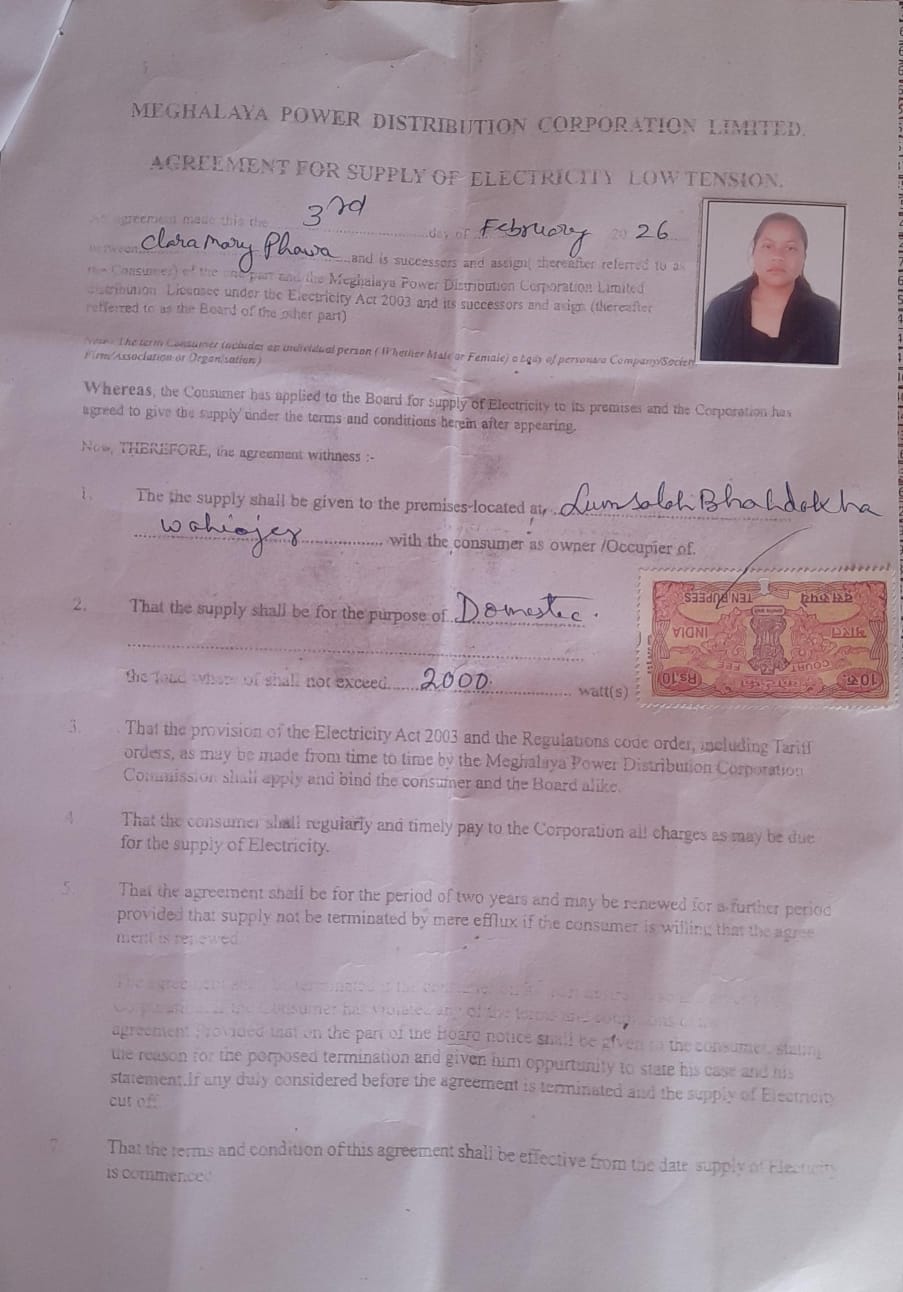 MEGHALAYA POWER DISTRIBUTION CORPORATION LIMITED.
AGREEMENT FOR SUPPLY OF ELECTRICITY LOW TENSION.
agreement made this the 3rd day of February 20 26
between Clara Mary Phawa and is successors and assign( thereafter referred to as
the Consumer) of the one part and the Meghalaya Power Distribution Corporation Limited
distribution Licensee under the Electricity Act 2003 and its successors and asign (thereafter
refferred to as the Board of the other part)
Note- The term Consumer includes an individual person ( Whether Male or Female) a body of persons a Company/Societ
Firm/Association or Organisation)
Whereas, the Consumer has applied to the Board for supply of Electricity to its premises and the Corporation has
agreed to give the supply under the terms and conditions herein after appearing.
Now, THEREFORE, the agreement witness :-
1. The the supply shall be given to the premises-located at, Lumsalah Bhahdakha
Wahiajer with the consumer as owner /Occupier of.
2. That the supply shall be for the purpose of Domestic.
the load where of shall not exceed 2000 watt(s)
TEN RUPEES दस रुपये
INDIA भारत
COURT FEE
Rs.10 रु.10
3. That the provision of the Electricity Act 2003 and the Regulations code order, including Tariff
orders, as may be made from time to time by the Meghalaya Power Distribution Corporation
Commission shall apply and bind the consumer and the Board alike.
4 That the consumer shall regularly and timely pay to the Corporation all charges as may be due
for the supply of Electricity.
5. That the agreement shall be for the period of two years and may be renewed for a further period
provided that supply not be terminated by mere efflux if the consumer is willing that the agree
ment is renewed
The agreement shall be terminated if the consumer on
Corporation if the Consumer has violated any of the terms and conditions of
agreement provided that on the part of the Board notice shall be given to the consumer, stating
the reason for the porposed termination and given him oppurtunity to state his case and his
statement.If any duly considered before the agreement is terminated and the supply of Electricity
cut off
7. That the terms and condition of this agreement shall be effective from the date supply of Electicity
is commenced